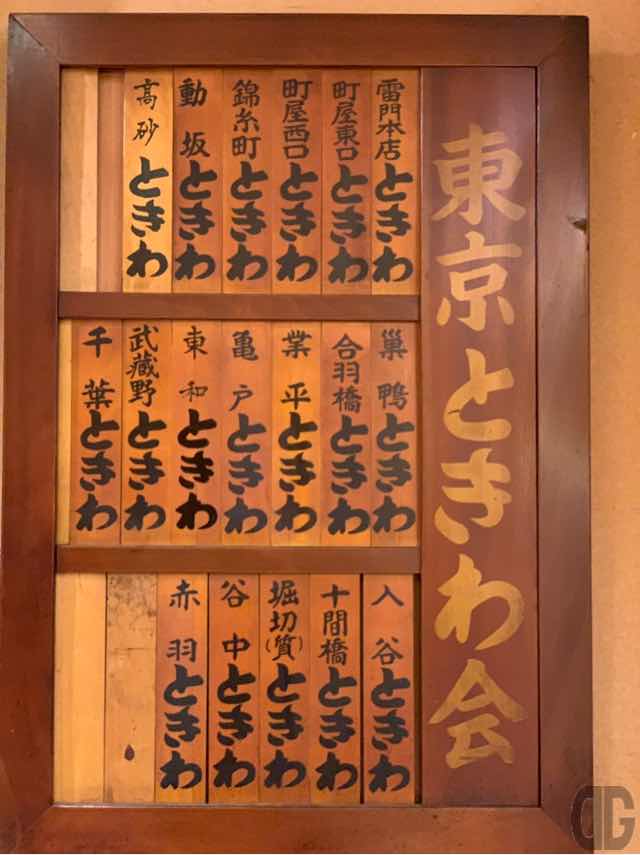 東京ときわ会
雷門本店ときわ
町屋東口ときわ
町屋西口ときわ
錦糸町ときわ
動坂ときわ
高砂ときわ
巣鴨ときわ
合羽橋ときわ
業平ときわ
亀戸ときわ
東和ときわ
武蔵野ときわ
千葉ときわ
入谷ときわ
十間橋ときわ
堀切(質)ときわ
谷中ときわ
赤羽ときわ
DG